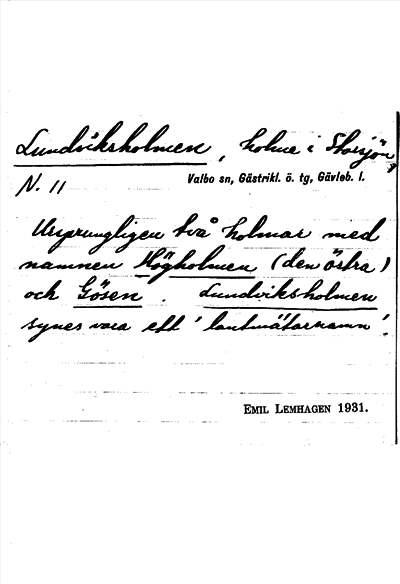 Lundviksholmen, holme i Storsjön,
N. 11
Valbo sn, Gästrikl. ö. tg, Gävleb. l.
Ursprungligen två holmar med
namnen Högholmen (den östra)
och Gösen. Lundviksholmen
synes vara ett 'lantmätarnamn'.
EMIL LEMHAGEN 1931.